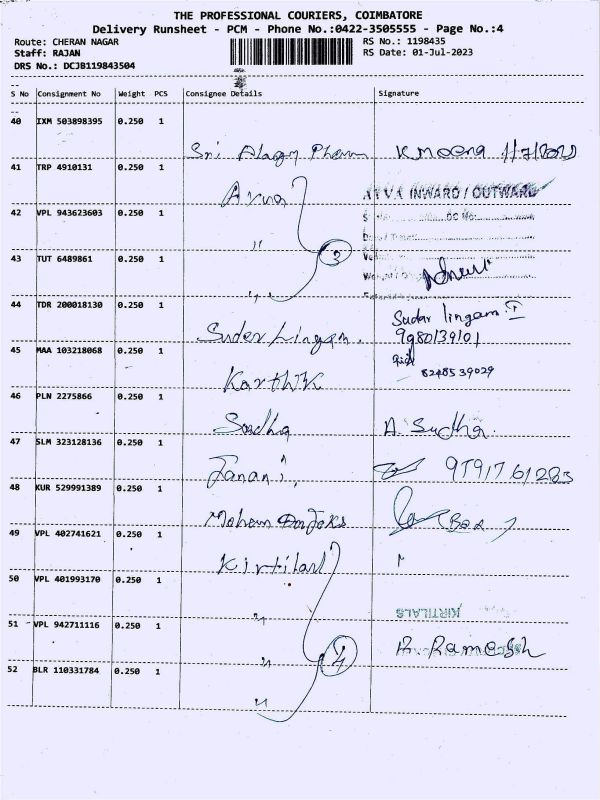 THE PROFESSIONAL COURIERS, COIMBATORE
Delivery Runsheet - PCM - Phone No.:0422-3505555 - Page No.:4
Route: CHERAN NAGAR RS No.: 1198435
Staff: RAJAN RS Date: 01-Jul-2023
DRS No.: DCJB119843504
S No Consignment No Weight PCS Consignee Details Signature
40 IXM 503898395 0.250 1
Sri Alagu Pharm K Meena 1/7/2023
41 TRP 4910131 0.250 1
Arva INWARD / OUTWARD
42 VPL 943623603 0.250 1
" DC No:
43 TUT 6489861 0.250 1 3
"
44 TDR 200018130 0.250 1
Sudar Lingam. Sudar lingam. I
9980139101
45 MAA 103218068 0.250 1
Karthik 8248539029
46 PLN 2275866 0.250 1
Sudha A. Sudha.
47 SLM 323128136 0.250 1
Janani, 9791761283
48 KUR 529991389 0.250 1
Mohan
49 VPL 402741621 0.250 1
Kirtilal
50 VPL 401993170 0.250 1
" KIRTILALS
51 VPL 942711116 0.250 1
" 4 R. Ramesh
52 BLR 110331784 0.250 1
"